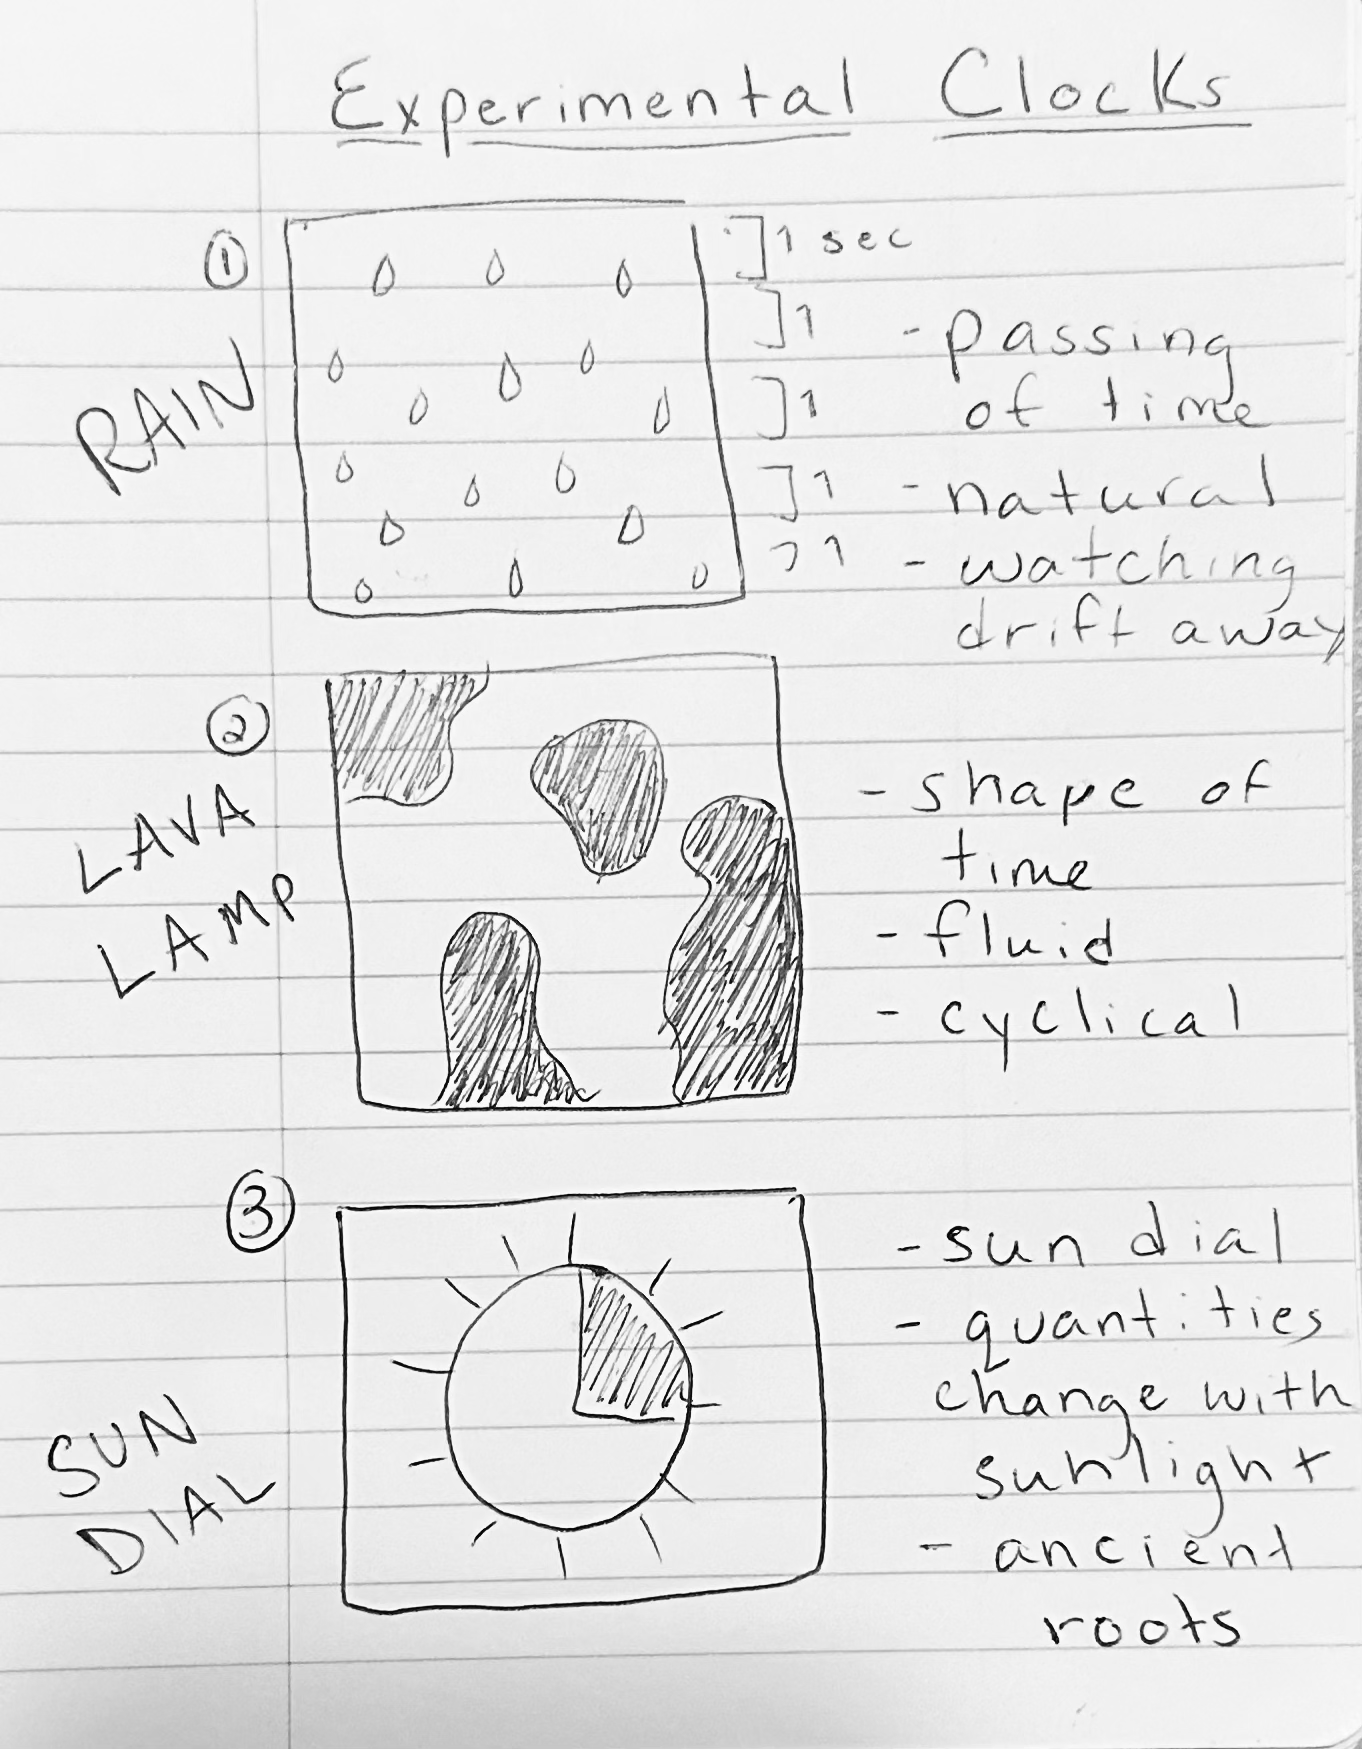 Experimental Clocks
①
RAIN
1 sec
1
1
1
1
- passing
of time
- natural
- watching
drift away
②
LAVA
LAMP
- shape of
time
- fluid
- cyclical
③
SUN
DIAL
- sun dial
- quantities
change with
sunlight
- ancient
roots